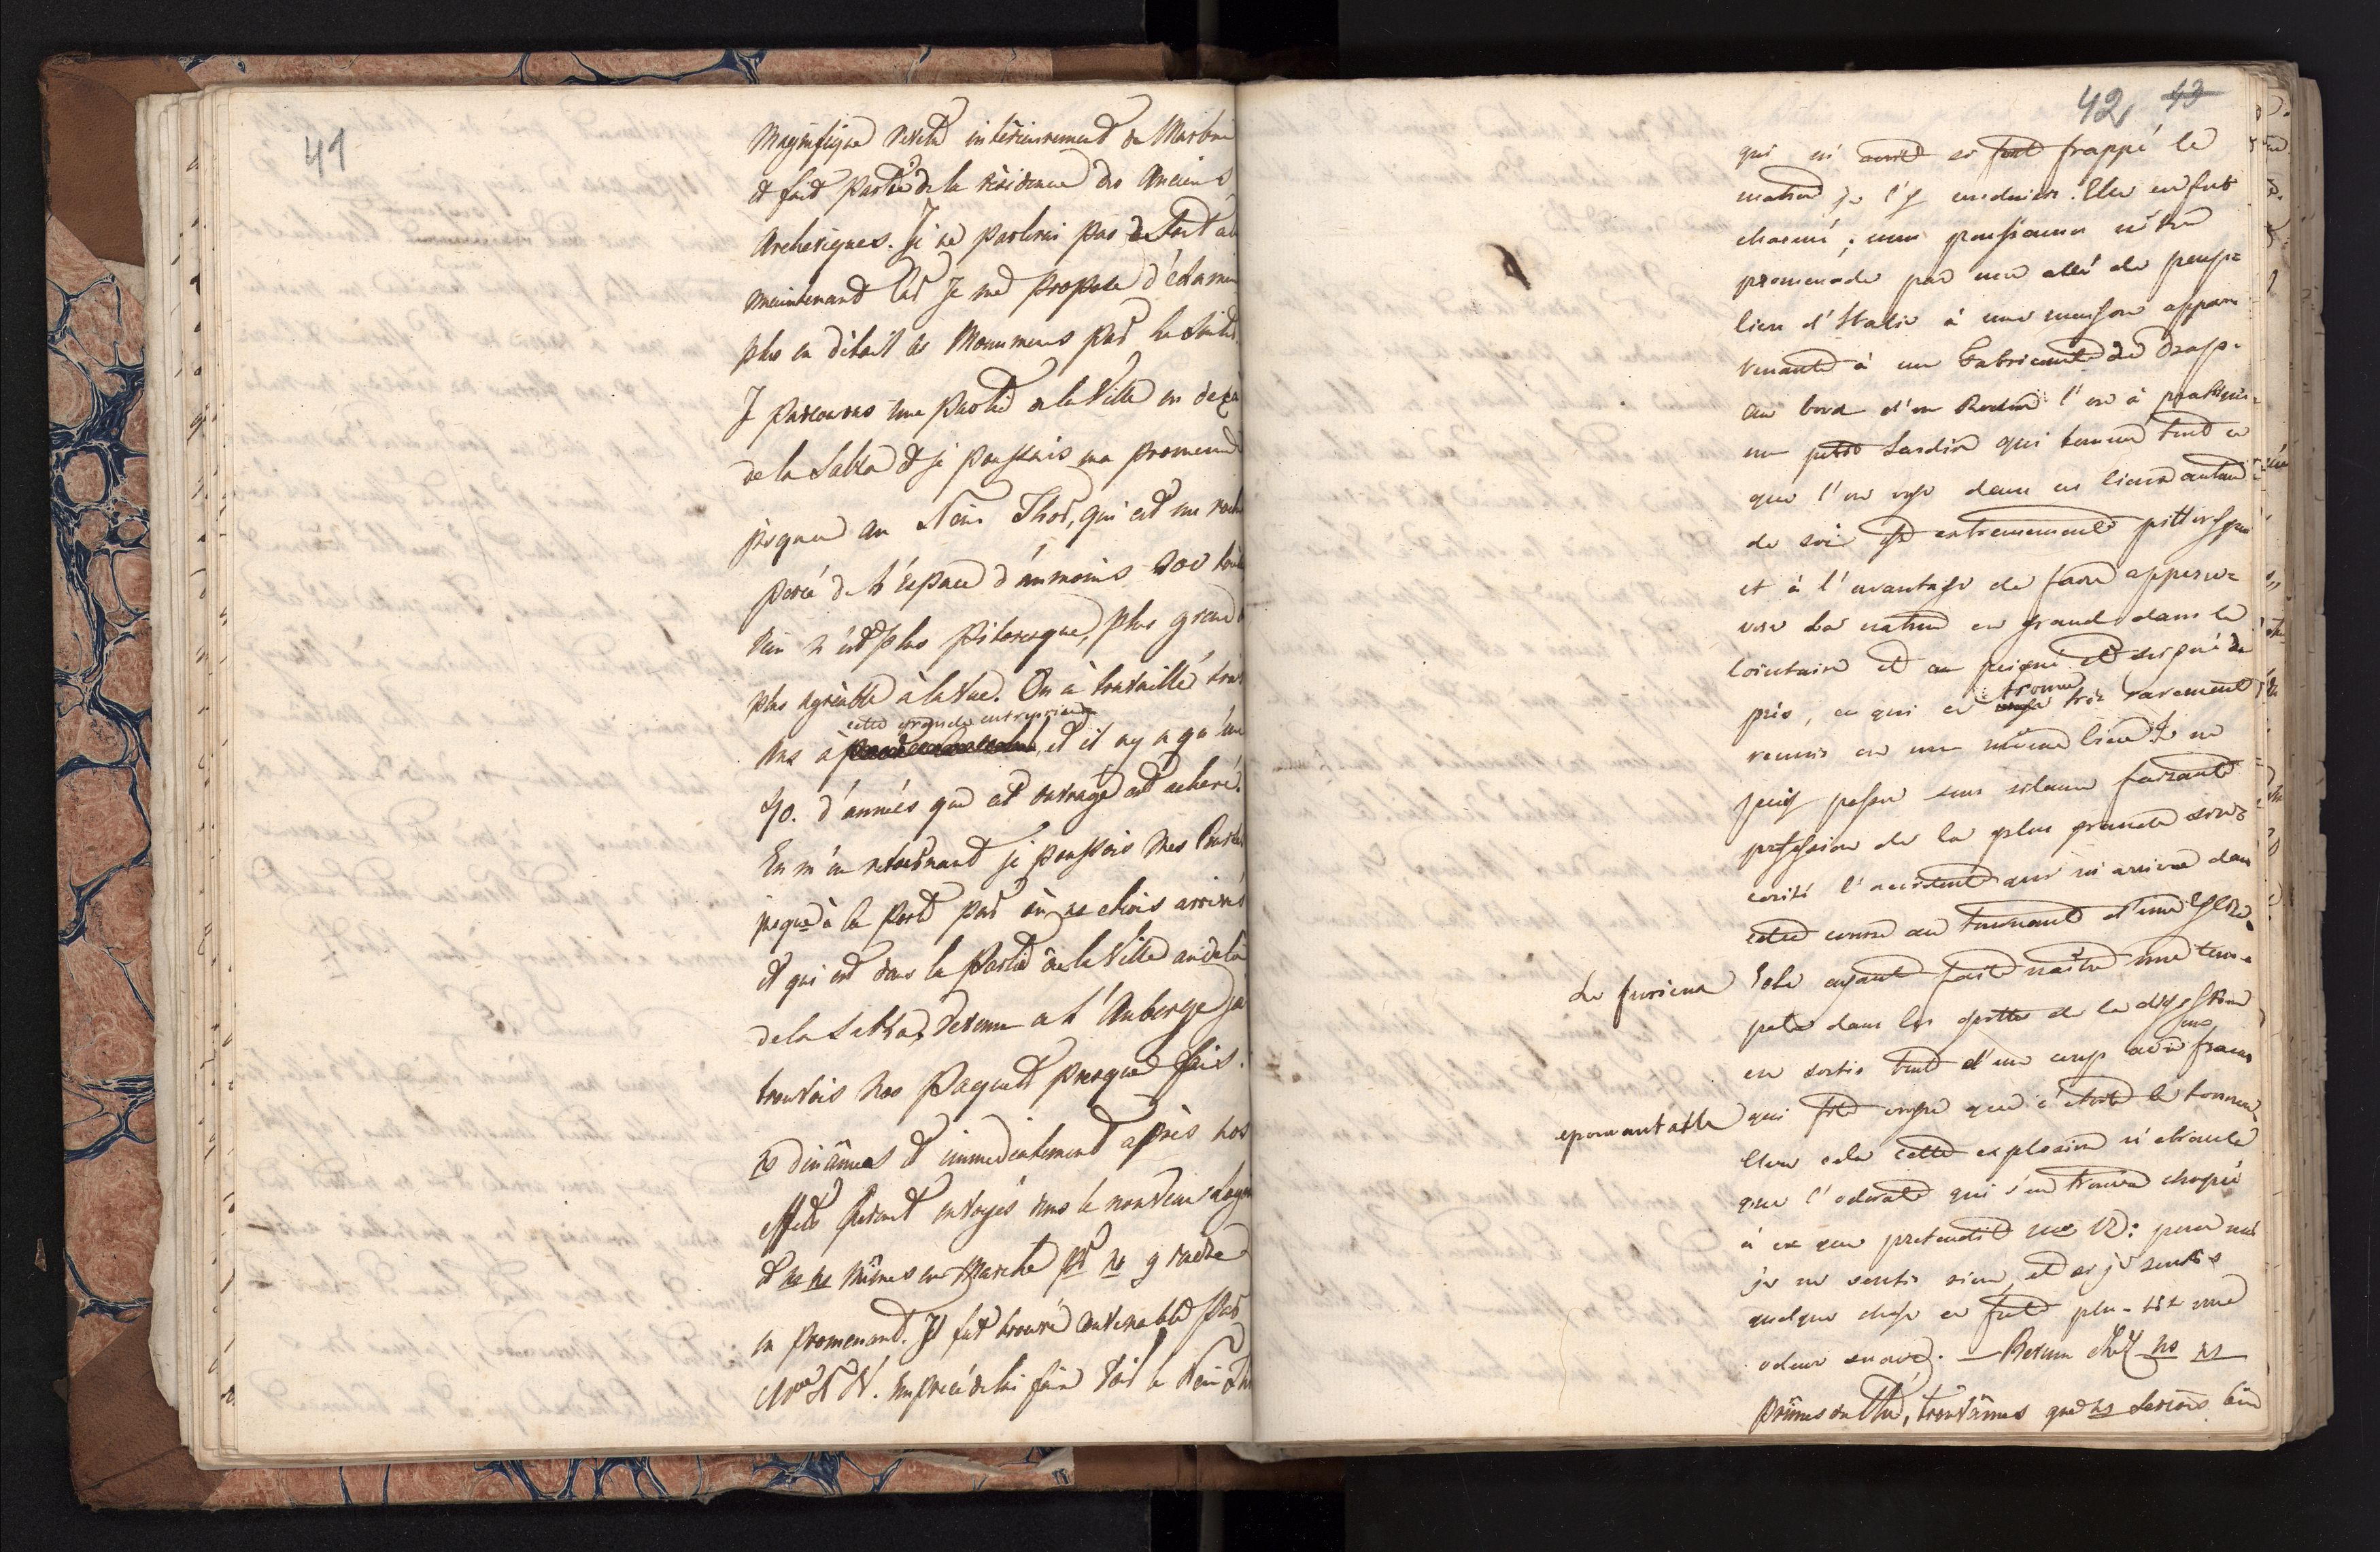 41
Magnifique revetu intérieurement de Marbre
et fait partie de la résidence des Anciens
Archeveques. Je ne parlerai pas de tout
maintenant Car Je me propose d'éxamin
plus en détail les Monumens par la Suite.
J parcourus une partie de la Ville en deça
de la Salza et je poussais ma promenad
jusqua au Neus Thor, qui est un roch
percé de l'Espace d'aumoins 200 toi
rien n'est plus pitoresque, plus grand
plus agréable à la vue. On à travaillé trois
cette grande entreprise
ans à et il ny a qu'une
40. d'années que cet ouvrage est achevé.
En m'en retournant je poussois mes Courses
jusque à la porte par où ns etions arrivés
et qui est dans la partie de la Ville audela
de la Salza, Revenu a l'Auberge je
trouvais nos Paquets presque fais.
ns dinâmes et immediatement après nos
effets furent envoyés dans le nouveau Logem
et ns ns mimes en Marche pr ns y rendre
en promenant. Il fut trouvé convenable par
de lui faire voir le Neu Thor
42 43
qui m' avoit si fort frappé le
matin je l'y conduisis. Elle en fut
charmé; nous poussames nôtre
promenade par une allé de peup=
liers d'Italie à une maison appar
tenante à un Fabricant de draps.
au bord d'un Rocher l'on à pratiqué
un petit Jardin qui comme tout ce
que l'on voye dans ces lieux autant
de soi est extremement pittoresque
et à l'avantage de faire apperce=
voir la nature en grand dans le
lointain et au peigné et soigné de
près, ce qui ce trouve très rarement
reunis en un même lieu Je ne
puis passer sous silence faisant
profession de la plus grande sinc=
cerité l'accident qui m'arriva dans
cette course au tournant d'une Eglise.
Le furieux Eole ayant faite naître une tem=
pete dans les grottes de la digestion
en sortis tout d'un coup avec un fracas
epouvantable qui fit croire que c'étoit le tonnere
cela cette explosion n'ebranla
que l'odorat qui s'en trouva choqué
à ce que pretendit : pour moi
je ne sentis rien, et si je sentis
quelque chose ce fut plu-tôt une
odeur suave. — Revenu chéz ns ns
prîmes du Thé, trouvâmes que ns serions bien